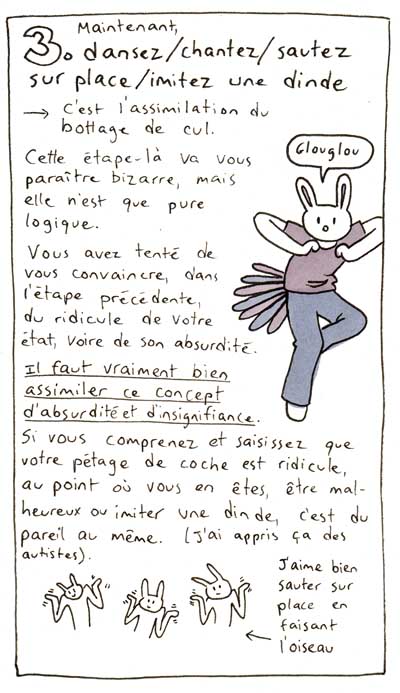 Maintenant,
3. dansez/chantez/sautez
sur place/imitez une dinde
→ c'est l'assimilation du
bottage de cul.
Glouglou
Cette étape-là va vous
paraître bizarre, mais
elle n'est que pure
logique.
Vous avez tenté de
vous convaincre, dans
l'étape précédente,
du ridicule de votre
état, voire de son absurdité.
Il faut vraiment bien
assimiler ce concept
d'absurdité et d'insignifiance.
Si vous comprenez et saisissez que
votre pétage de coche est ridicule,
au point où vous en êtes, être mal-
heureux ou imiter une dinde, c'est du
pareil au même. (J'ai appris ça des
autistes).
J'aime bien
sauter sur
place en
faisant
l'oiseau